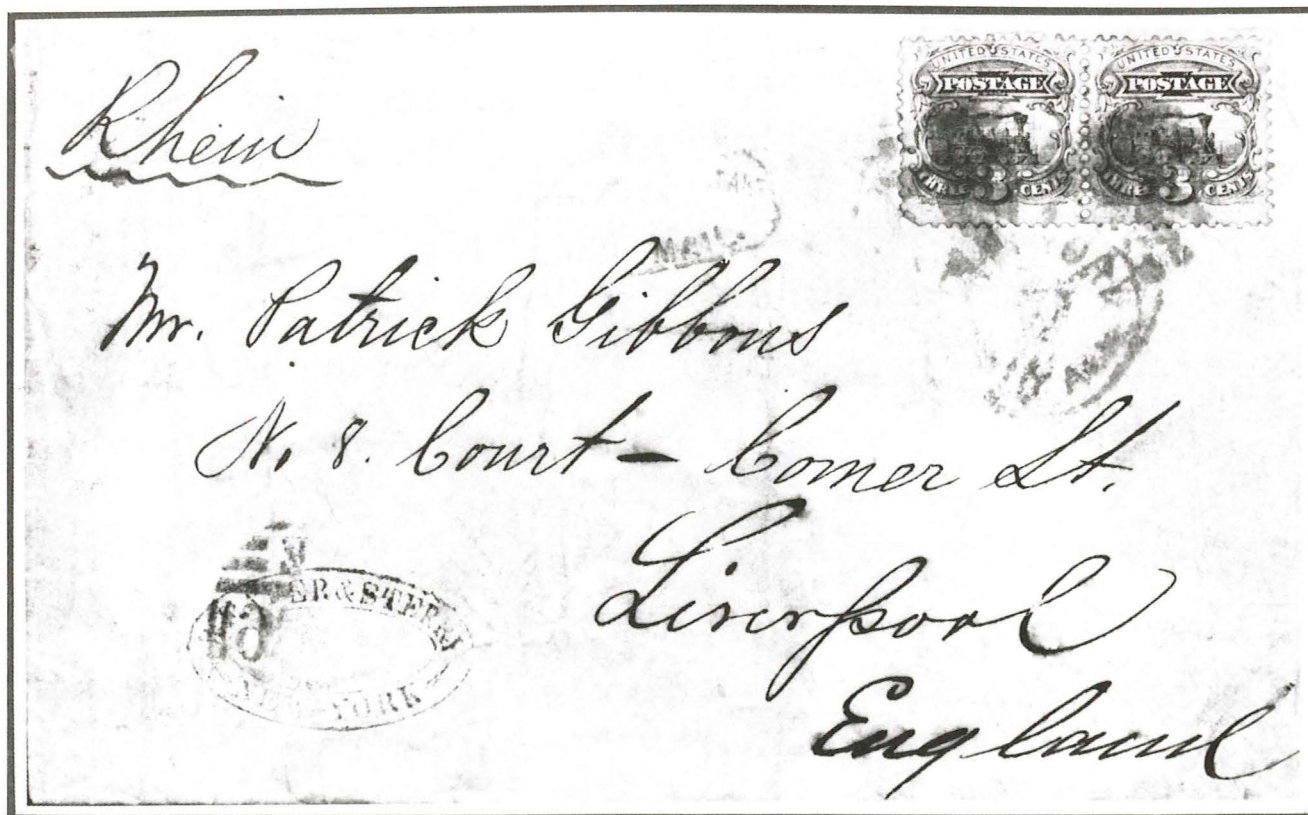 Rhein
UNITED STATES
POSTAGE
THREE 3 CENTS
UNITED STATES
POSTAGE
THREE 3 CENTS
MAIL.
Mr. Patrick Gibbons
N. 8. Court – Comer St.
Liverpool
England
YORK